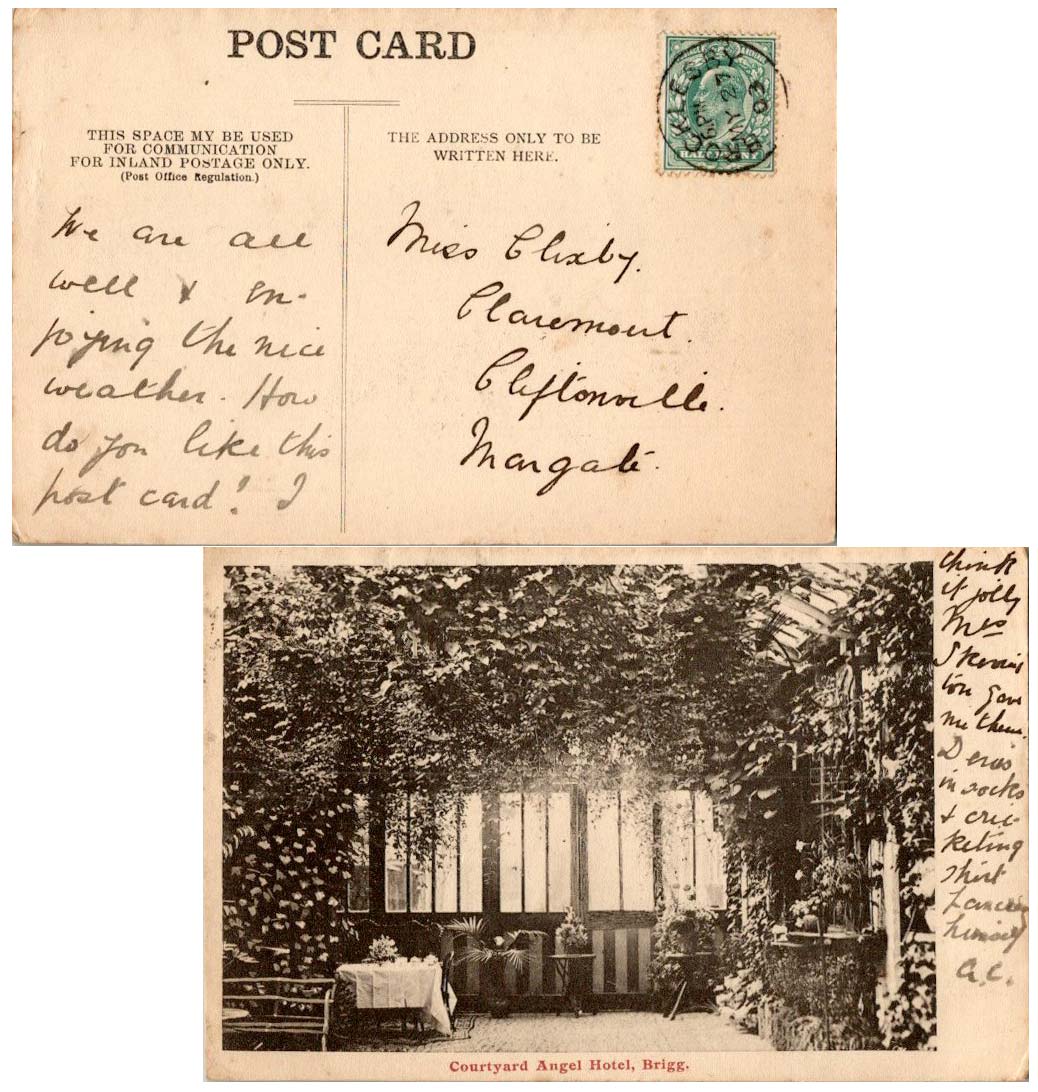 POST CARD
THIS SPACE MY BE USED
FOR COMMUNICATION
FOR INLAND POSTAGE ONLY.
(Post Office Regulation.)
THE ADDRESS ONLY TO BE
WRITTEN HERE.
BROCKLESBY
5 PM
MY 27
03
HALFPENNY
We are all
well & en-
joying the nice
weather. How
do you like this
post card! I
Miss Clixby.
Claremount.
Cliftonville.
Margate.
think
it jolly
Mrs
Skevin
ton gave
me them.
in socks
& cric
keting
shirt
himself
A.C.
Courtyard Angel Hotel, Brigg.